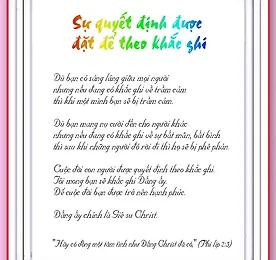 Sự quyết định được
đặt để theo khắc ghi
Dù bạn có sáng láng giữa mọi người
nhưng nếu đang có khắc ghi về trầm cảm
thì khi một mình bạn sẽ bị trầm cảm.
Dù bạn mang nụ cười đến cho người khác
nhưng nếu đang có khắc ghi về sự bất mãn, bất bình
thì sau khi những người đó rời đi thì họ sẽ bị phê phán.
Cuộc đời con người được quyết định theo khắc ghi.
Tôi mong bạn sẽ khắc ghi Đấng ấy.
Để cuộc đời bạn được trở nên hạnh phúc.
Đấng ấy chính là Giê su Christ.
"Hãy có đồng một tâm tình như Đấng Christ đã có," (Phi líp 2:5)